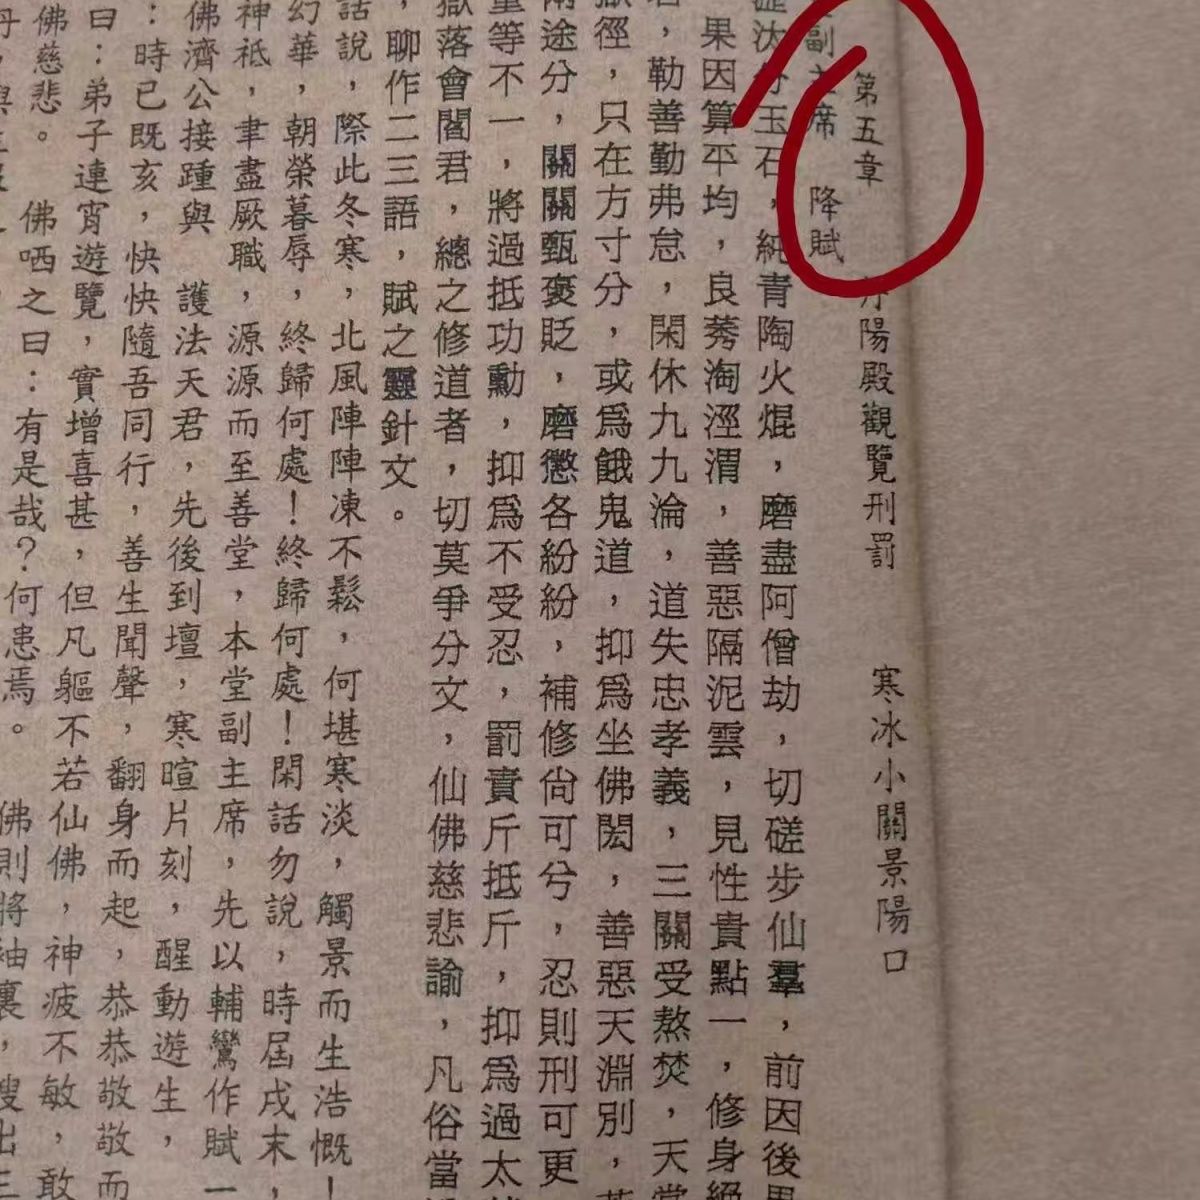 第五章 丹陽殿觀覽刑罰 寒冰小關景陽口
副主席 降賦
玉石，純青陶火焜，磨盡阿僧劫，切磋步仙羣，前因後果
果因算平均，良莠淘涇渭，善惡隔泥雲，見性貴點一，修身絕
，勒善勤弗怠，閑休九九淪，道失忠孝義，三關受熬焚，天堂
獄徑，只在方寸分，或爲餓鬼道，抑爲坐佛閎，善惡天淵別，
兩途分，關關甄褒貶，磨懲各紛紛，補修尙可兮，忍則刑可更
量等不一，將過抵功勳，抑爲不受忍，罰責斤抵斤，抑爲過太
獄落會閻君，總之修道者，切莫爭分文，仙佛慈悲諭，凡俗當
，聊作二三語，賦之靈針文。
話說，際此冬寒，北風陣陣凍不鬆，何堪寒淡，觸景而生浩慨！
幻華，朝榮暮辱，終歸何處！終歸何處！閑話勿說，時屆戌末，
神祇，聿盡厥職，源源而至善堂，本堂副主席，先以輔鸞作賦一
佛濟公接踵與 護法天君，先後到壇，寒暄片刻，醒動遊生，
：時已既亥，快快隨吾同行，善生聞聲，翻身而起，恭恭敬敬而
曰：弟子連宵遊覽，實增喜甚，但凡軀不若仙佛，神疲不敏，敢
佛慈悲。 佛哂之曰：有是哉？何患焉。 佛則將袖裏，